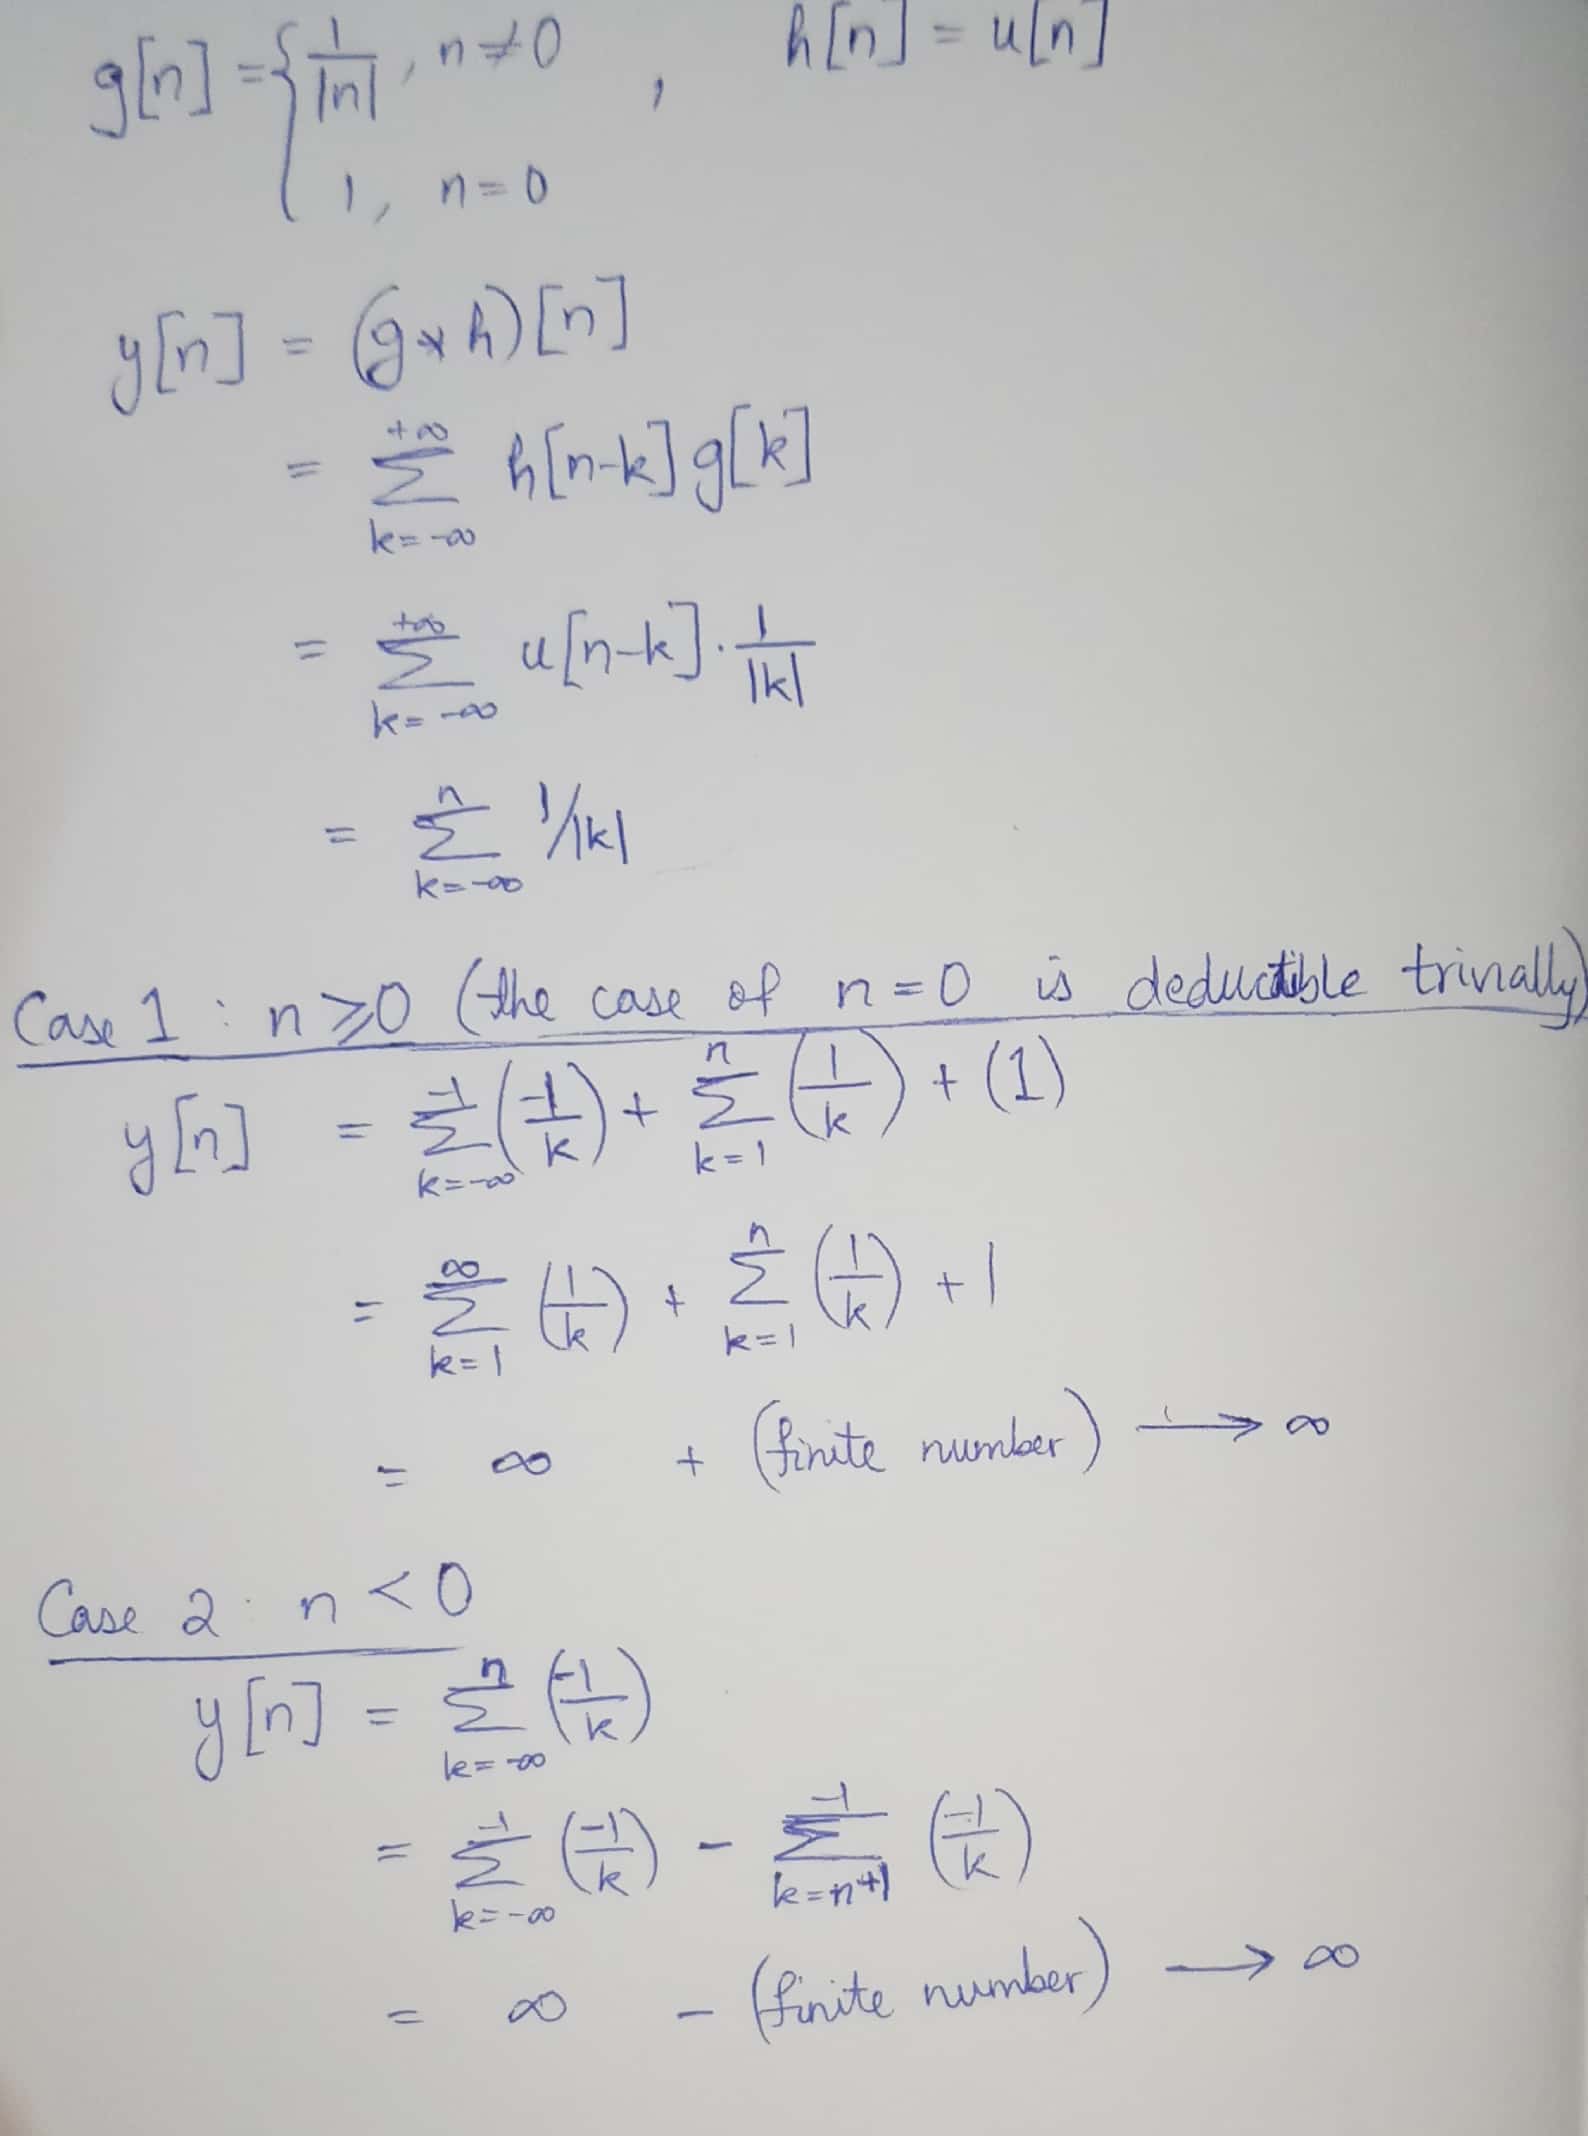 g[n] = { 1/|n| , n≠0 , h[n] = u[n]
1, n=0
y[n] = (g*h)[n]
= Σ_{k=-∞}^{+∞} h[n-k] g[k]
= Σ_{k=-∞}^{+∞} u[n-k] · 1/|k|
= Σ_{k=-∞}^{n} 1/|k|
Case 1 : n⩾0 (the case of n=0 is deductible trivially)
y[n] = Σ_{k=-∞}^{-1} (-1/k) + Σ_{k=1}^{n} (1/k) + (1)
= Σ_{k=1}^{∞} (1/k) + Σ_{k=1}^{n} (1/k) + 1
= ∞ + (finite number) → ∞
Case 2 : n<0
y[n] = Σ_{k=-∞}^{n} (-1/k)
= Σ_{k=-∞}^{-1} (-1/k) - Σ_{k=n+1}^{-1} (-1/k)
= ∞ - (finite number) → ∞